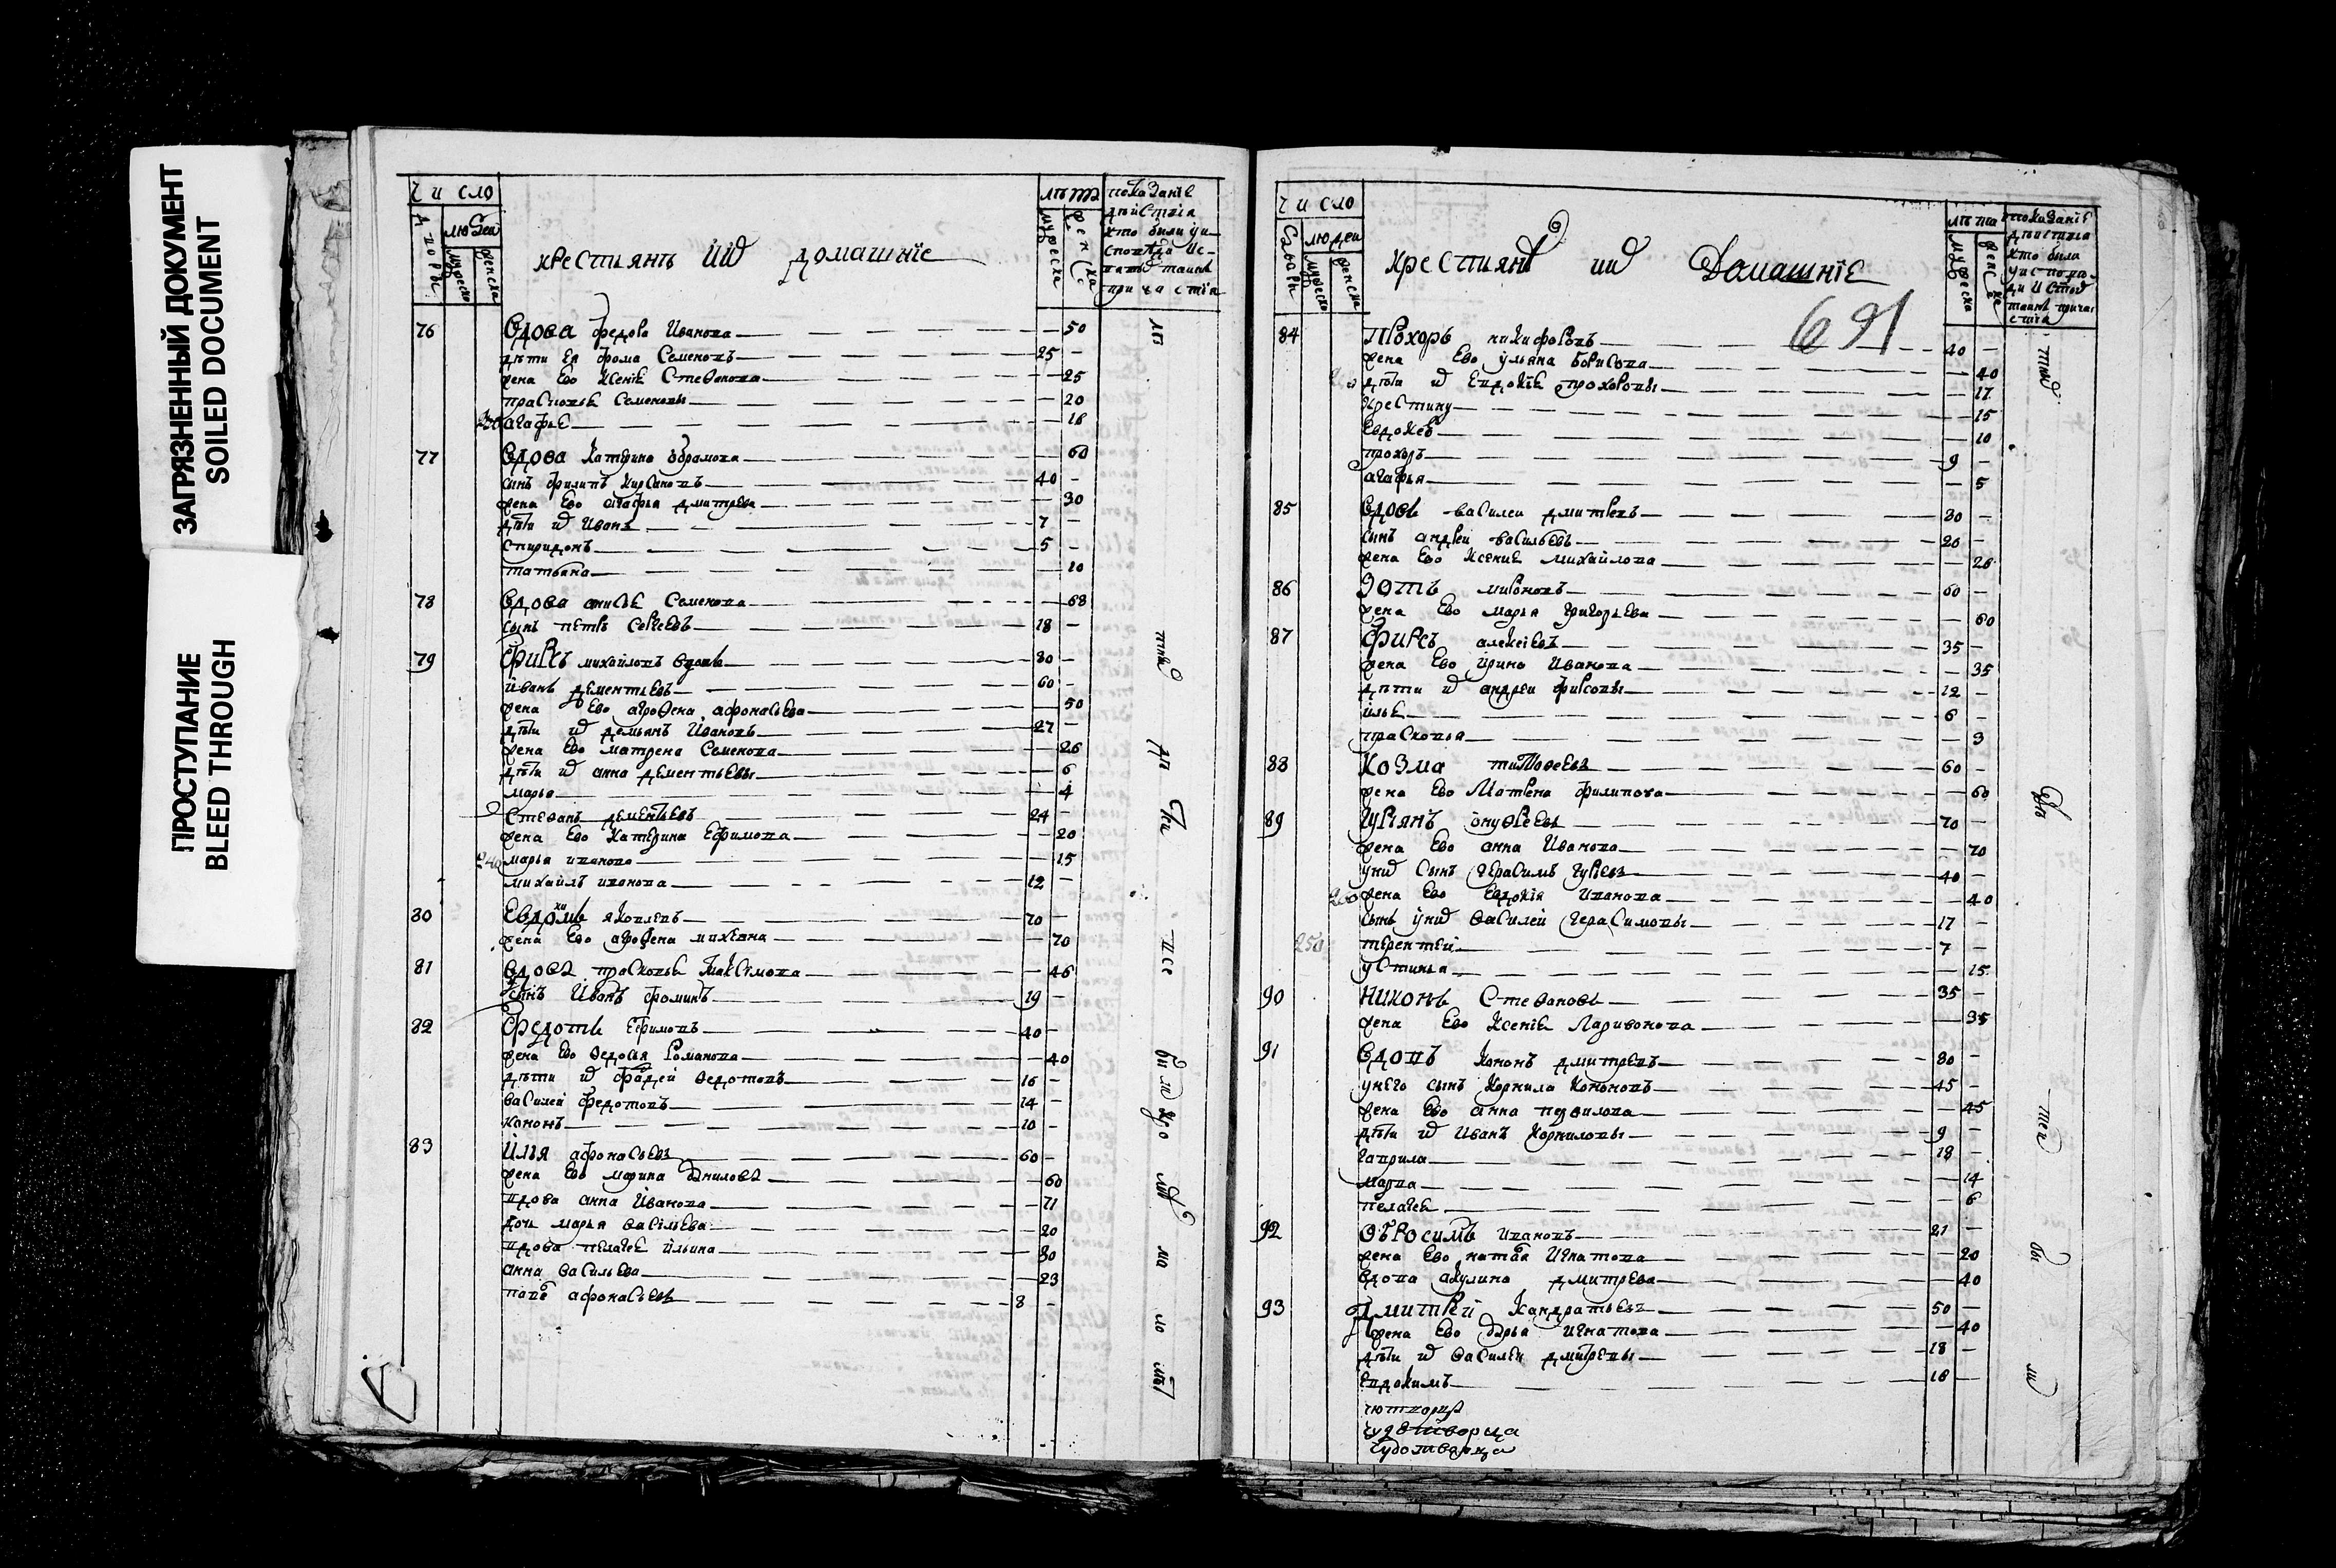 ЗАГРЯЗНЕННЫЙ ДОКУМЕНТ
SOILED DOCUMENT
ПРОСТУПАНИЕ
BLEED THROUGH
число
людей
мужеска
женска
крестьянъ ихъ домашние
лета
мужеска
женска
показание
действа
кто были
76 вдова федора Иванова 50
дети ея фома Семеновъ 25
жена Ево Ксение Степанова 25
прасковье Семеновы 20
230 агафье 18
77 вдова Катерина 60
сынъ филипъ 40
жена Ево агафья дмитрева 30
дети их Иванъ 7
спиридонъ 5
татьяна 10
78 вдова анисье Семенова 68
сынъ петръ Сергеевъ 18
79 фирсъ михайловъ вдовъ 80
иванъ дементьевъ 60
жена Ево агрофена афонасьева 50
дети их демьянъ Ивановъ 27
жена Ево матрена Семенова 26
дети их анна дементьевы 6
марья 4
Степанъ дементьевъ 24
жена Ево Катерина Ефимова 20
240 марья иванова 15
михайлъ иванова 12
80 Евдокимъ яковлевъ 70
жена Ево агрофена михевна 70
81 вдова прасковье максимова 46
сынъ Иванъ фоминъ 19
82 федотъ Ефимовъ 40
жена Ево федосья Романова 40
дети их фадей федотовъ 16
василей федотовъ 14
кононъ 10
83 илья афонасьевъ 60
жена Ево марина данилова 60
вдова анна Иванова 71
дочь марья васильева 20
вдова пелагея ильина 80
анна васильева 23
афонасьевъ 8
число
людеи
мужеско
женска
крестьянъ ихъ Домашние
691
лета
мужеска
показание
кто были
84 прохоръ никифоровъ 40
жена Ево ульяна борисова 40
дети их Евдокие прохоровы 17
15
10
прохоръ 9
агафья 5
85 вдовъ василеи дмитревъ 80
сынъ андреи васильевъ 26
жена Ево Ксение михайлова 26
86 Зотъ мироновъ 60
жена Ево марья григорьева 60
87 фирсъ алексеевъ 35
жена Ево ирина Иванова 35
дети их андреи фирсовы 12
илье 6
прасковья 3
88 Козма тимофеевъ 60
жена Ево Матрена филипова 60
89 гурьянъ онуфреевъ 70
жена Ево анна Иванова 70
у них сынъ герасимъ гурьевъ 40
260 жена Ево Евдокия иванова 40
сынъ у них василей герасимовы 17
250 терентей 7
устинья 15
90 Никонъ Степановъ 35
жена Ево Ксение Ларивонова 35
91 вдовъ кононъ дмитревъ 80
у него сынъ корнила кононовъ 45
жена Ево анна 45
дети их Иванъ корниловы 9
гаврила 18
марва 14
пелагея 6
92 обросимъ ивановъ 21
жена Ево Игнатова 20
вдова акулина дмитрева 40
93 дмитрей Кандратьевъ 50
жена Ево дарья игнатова 40
дети их василеи дмитревы 18
Евдокимъ 16
чудотворца
чудотворца